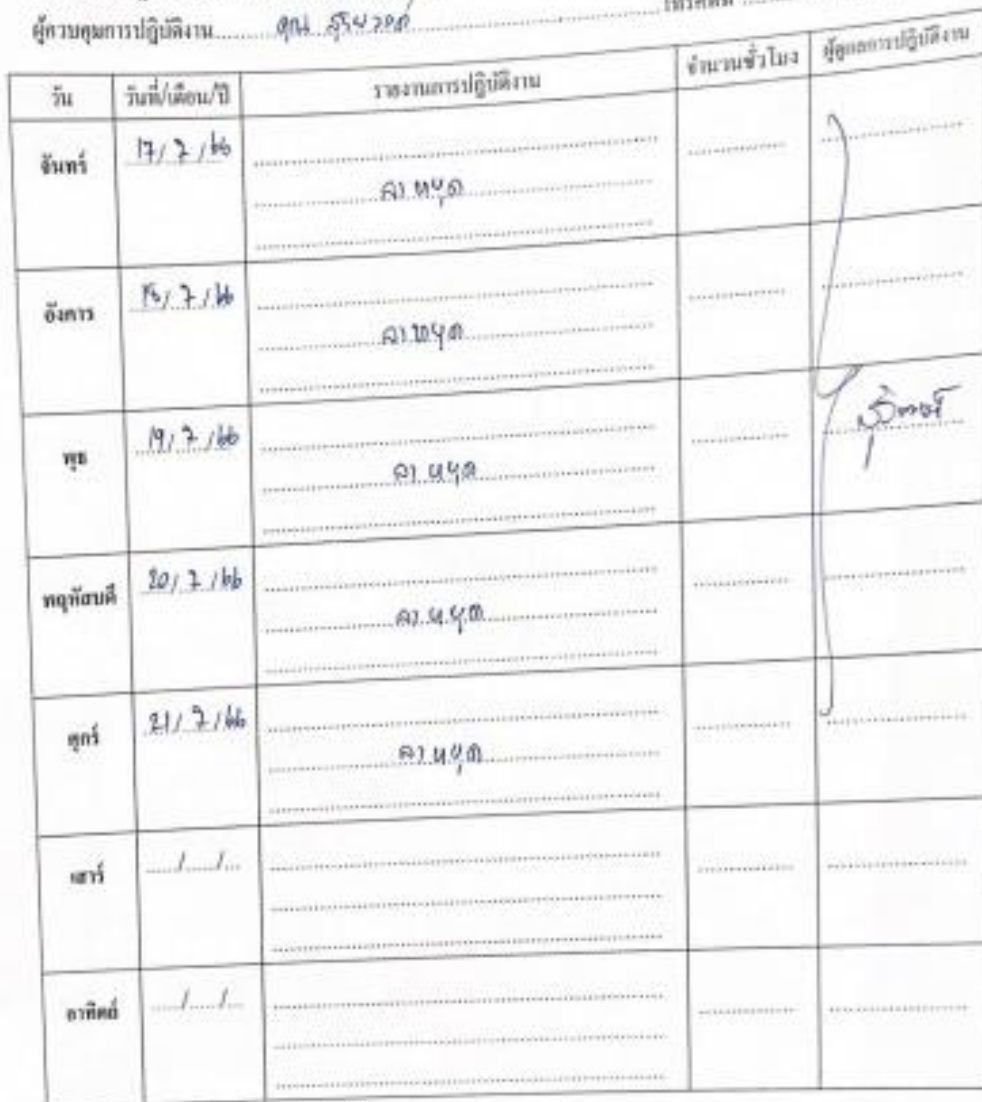 ผู้ควบคุมการปฏิบัติงาน........คุณ
วัน วันที่/เดือน/ปี รายงานการปฏิบัติงาน จำนวนชั่วโมง ผู้ดูแลการปฏิบัติงาน
จันทร์ 17/7/66
ลาหยุด
อังคาร 18/7/66
ลาหยุด
พุธ 19/7/66
ลาหยุด
พฤหัสบดี 20/7/66
ลาหยุด
ศุกร์ 21/7/66
ลาหยุด
เสาร์ ...../...../.....
อาทิตย์ ...../...../.....